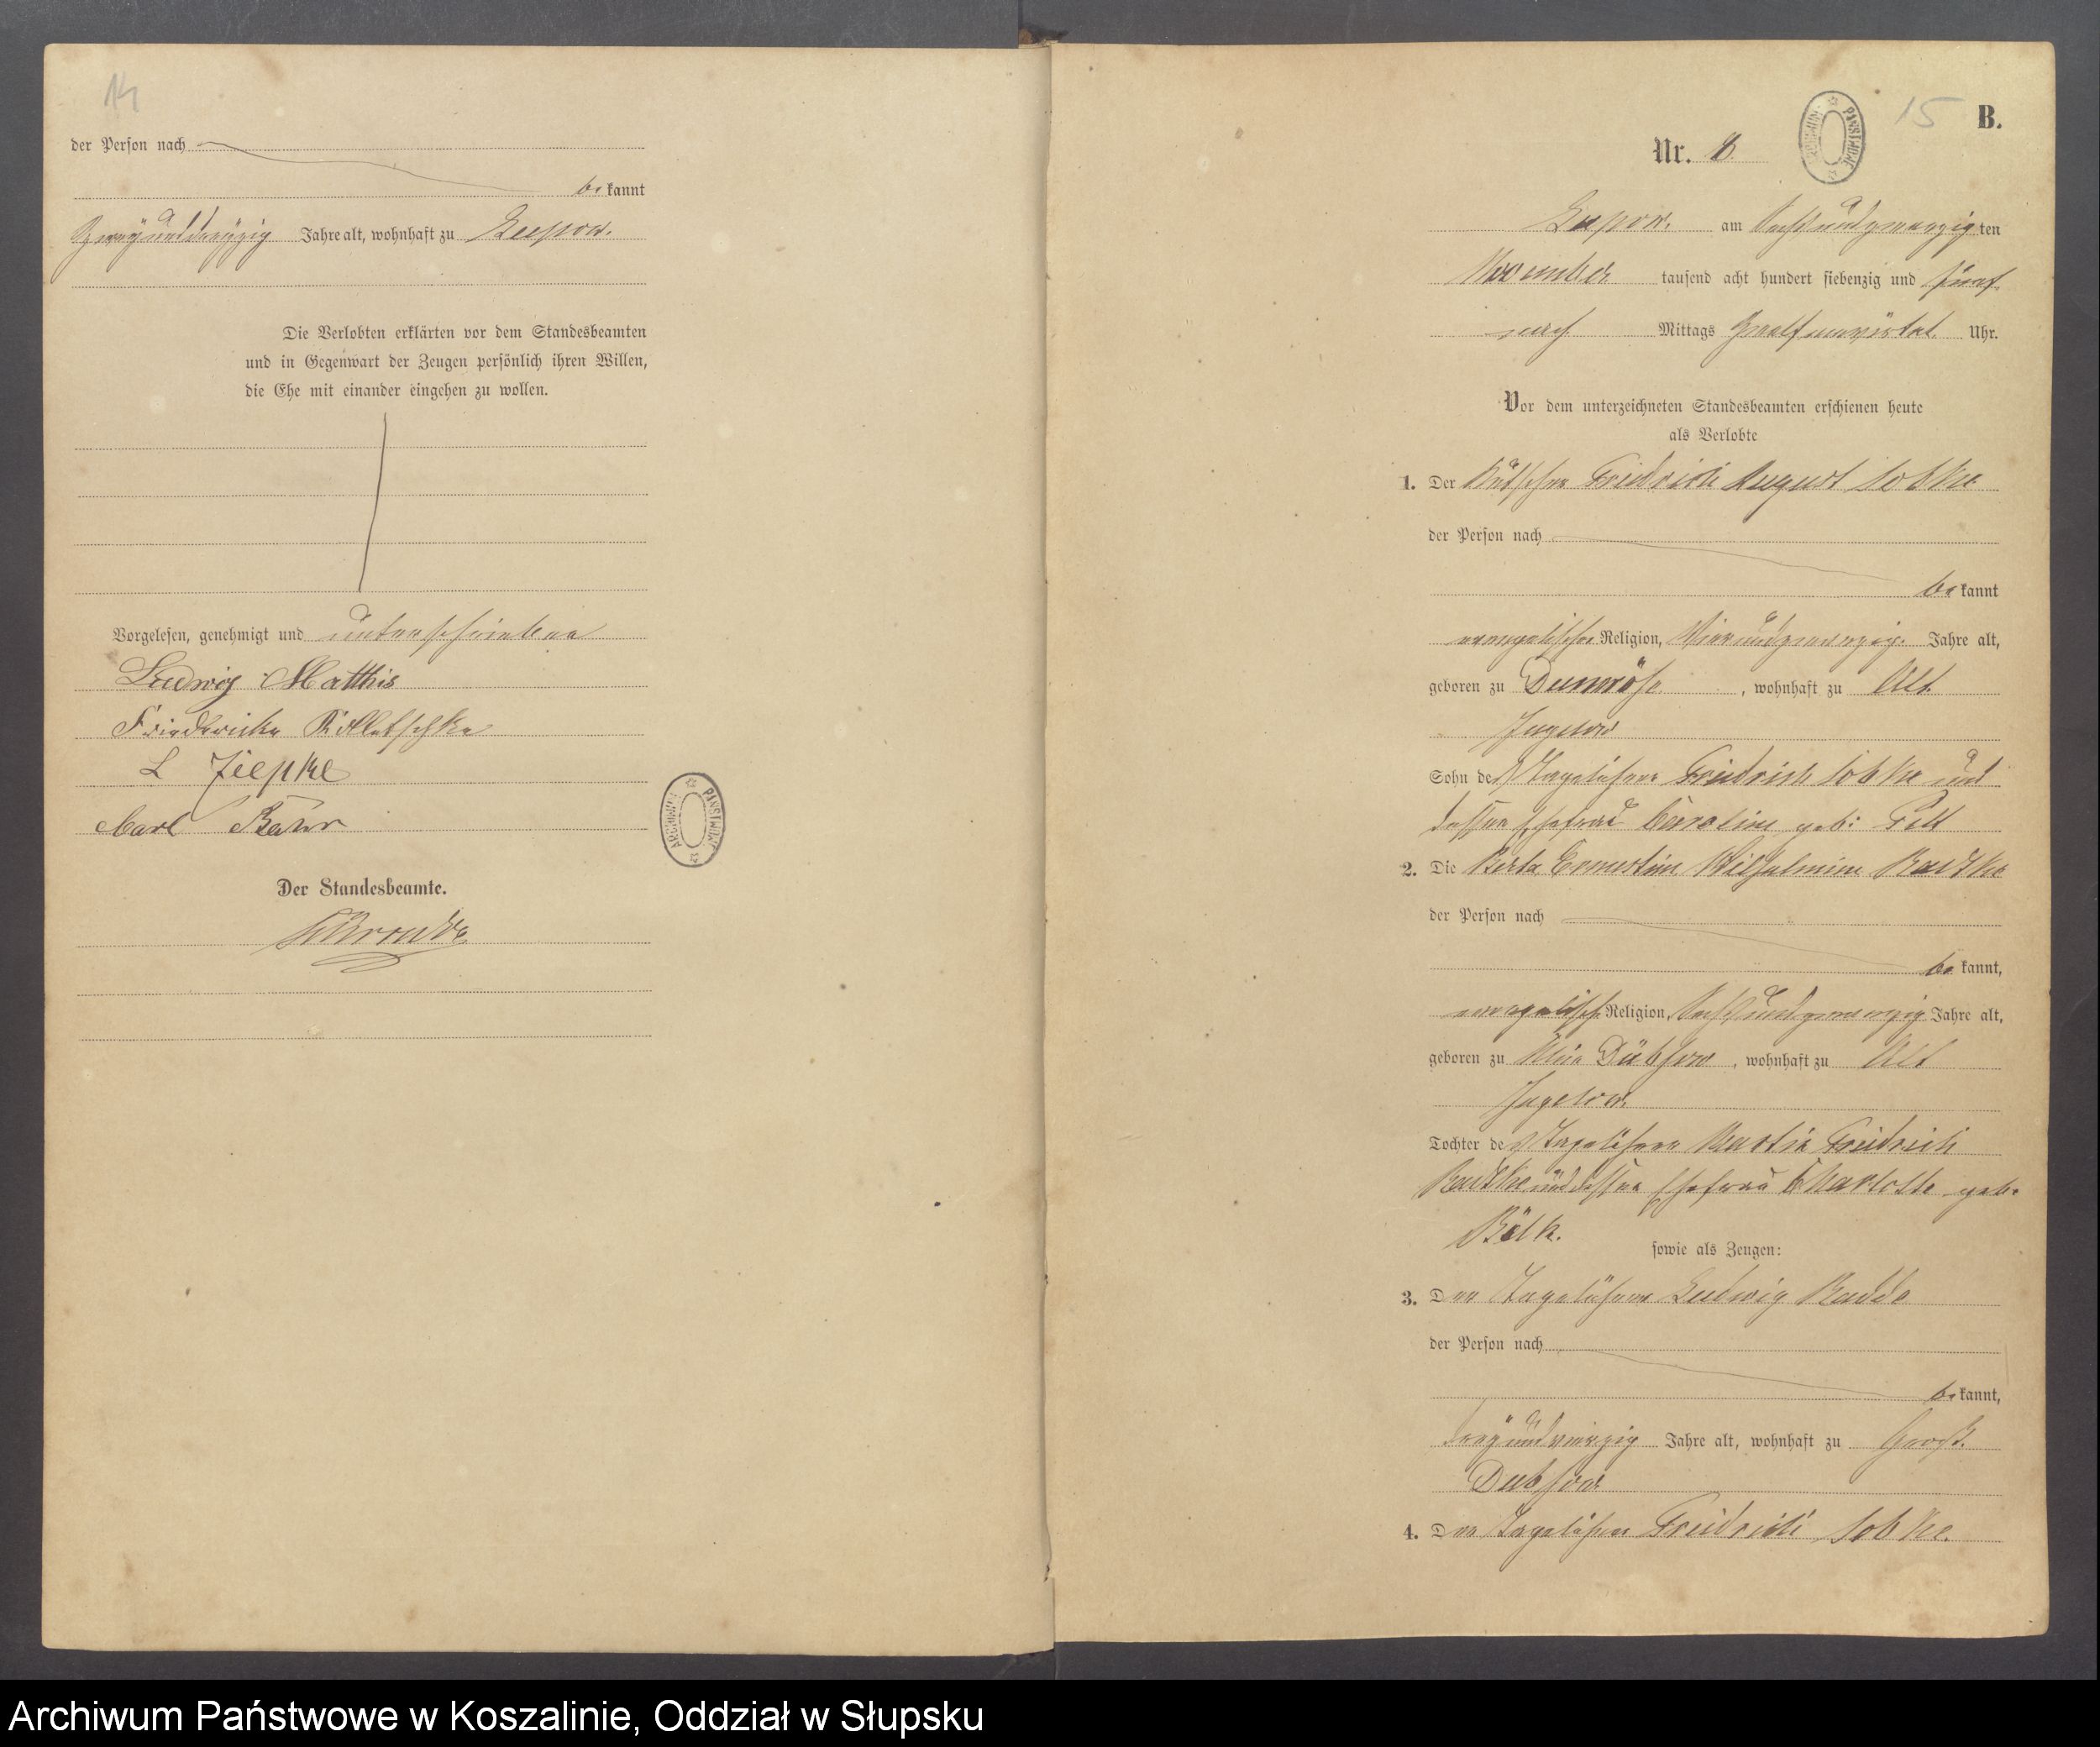 14
der Person nach
be kannt
Zweiunddreißig Jahre alt, wohnhaft zu Lupow.
Die Verlobten erklärten vor dem Standesbeamten
und in Gegenwart der Zeugen persönlich ihren Willen,
die Ehe mit einander eingehen zu wollen.
Vorgelesen, genehmigt und unterschrieben
Ludwig Matthis
Friedericke
L Ziepke
Carl
Der Standesbeamte.
ARCHIWUM PAŃSTWOWE
15 B.
Nr. 8
ARCHIWUM PAŃSTWOWE
Lupow. am Sechsundzwanzig ten
November tausend acht hundert siebenzig und fünf
nach Mittags Uhr.
Vor dem unterzeichneten Standesbeamten erschienen heute
als Verlobte
1. Der Kutscher Friedrich August
der Person nach
be kannt
evangelischer Religion, Vierundzwanzig Jahre alt,
geboren zu Dumröse, wohnhaft zu Alt
Jugelow
Sohn des Tagelöhner Friedrich und
dessen Ehefrau Caroline geb:
2. Die Berta Ernestine Wilhelmine Radtke
der Person nach
be kannt,
evangelische Religion, Sechsundzwanzig Jahre alt,
geboren zu Klein Dübsow, wohnhaft zu Alt
Jugelow.
Tochter des Tagelöhner Martin Friedrich
Radtke und dessen Ehefrau Charlotte geb.
sowie als Zeugen:
3. Der Tagelöhner Ludwig Radde
der Person nach
be kannt,
dreyundvierzig Jahre alt, wohnhaft zu Groß
Dubsow
4. Der Tagelöhner Friedrich
Archiwum Państwowe w Koszalinie, Oddział w Słupsku